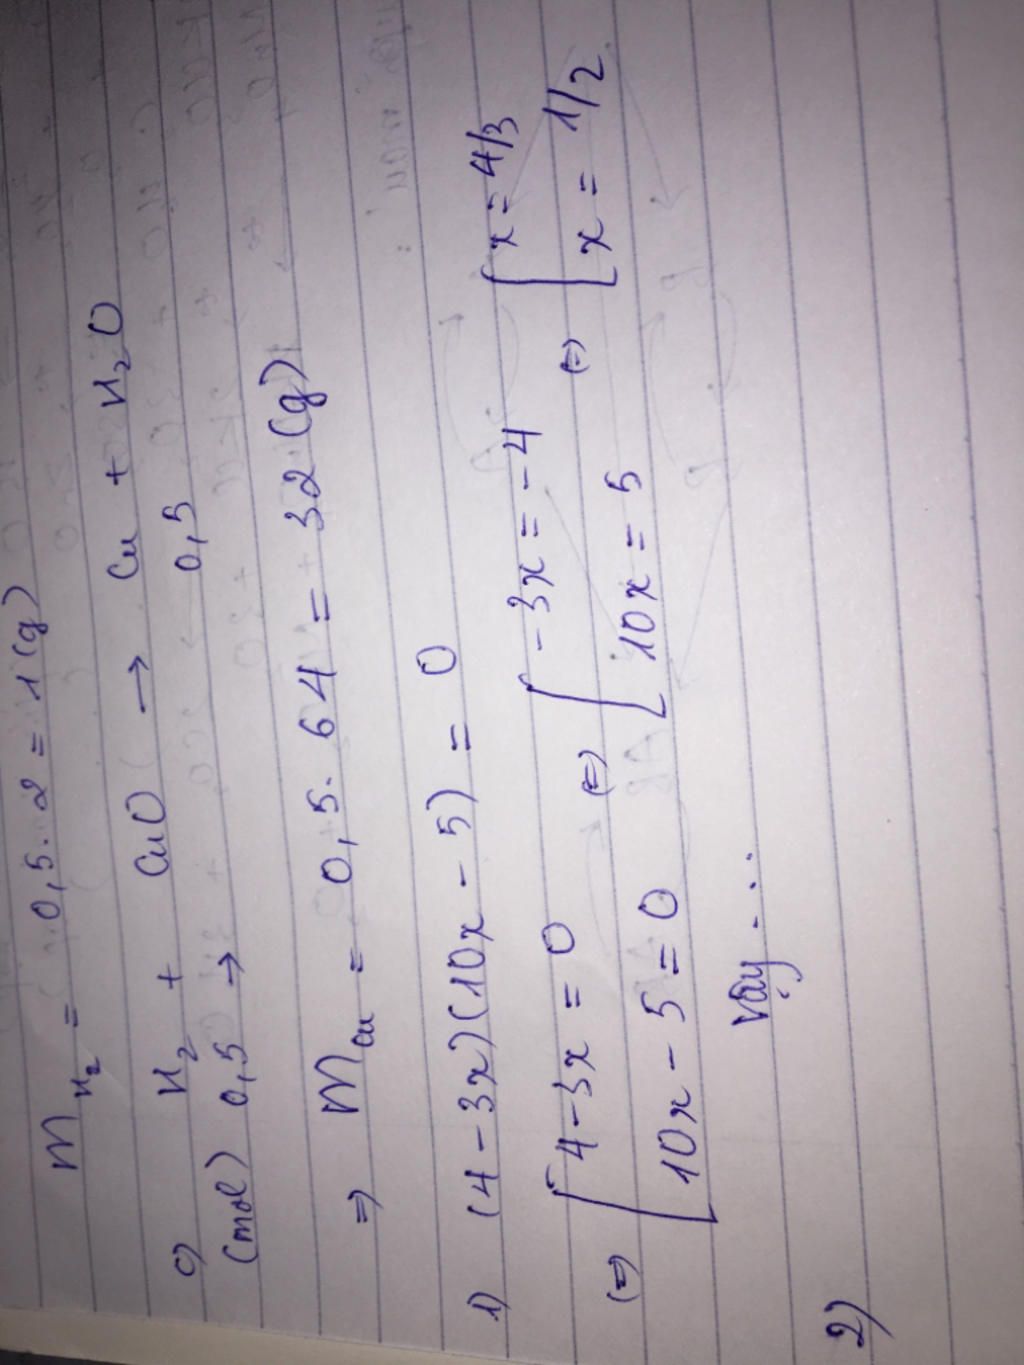 m H₂ = 0,5 . 2 = 1 (g)
c) H₂ + CuO → Cu + H₂O
(mol) 0,5 → 0,5
⇒ m Cu = 0,5 . 64 = 32 (g)
1) (4 - 3x)(10x - 5) = 0
(=) [ 4 - 3x = 0 (=) [ -3x = -4 (=) [ x = 4/3
10x - 5 = 0 10x = 5 x = 1/2
Vậy ...
2)